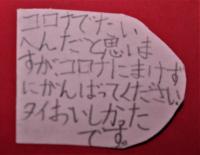 コロナでたい
へんだと思いま
すがコロナにまけず
にがんばってください
タイおいしかった
です。